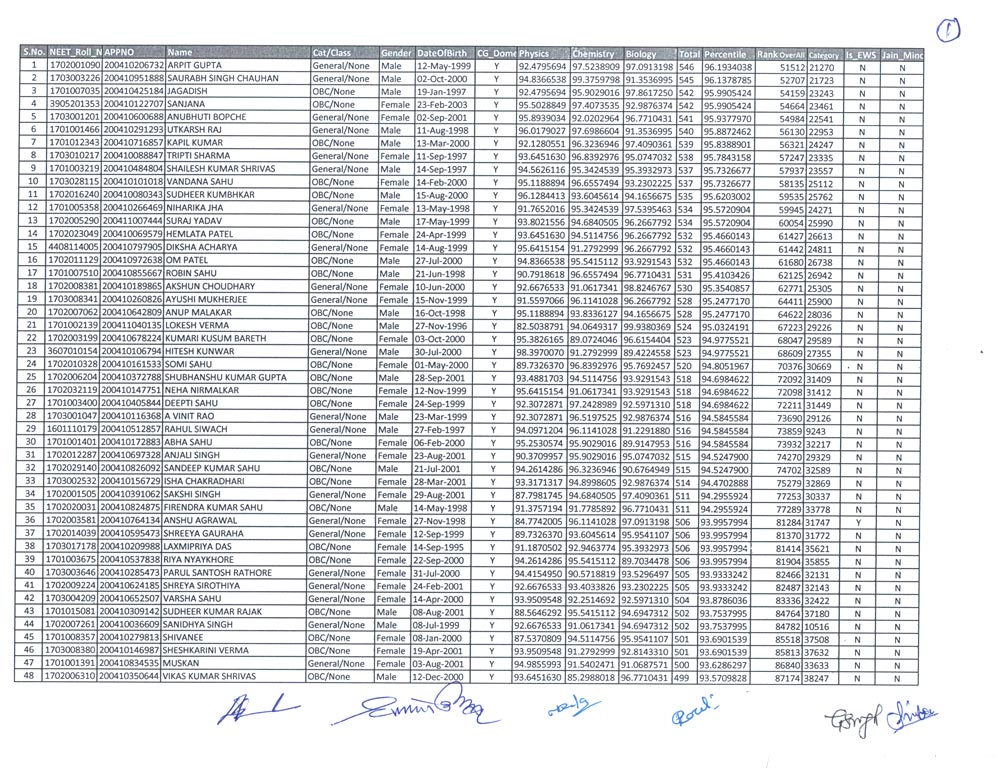 1
S.No. NEET_Roll_N APPNO Name Cat/Class Gender DateOfBirth CG_Dome Physics Chemistry Biology Total Percentile Rank OverAll Category Is_EWS Jain_Minc
1 1702001090 200410206732 ARPIT GUPTA General/None Male 12-May-1999 Y 92.4795694 97.5238909 97.0913198 546 96.1934038 51512 21270 N N
2 1703003226 200410951888 SAURABH SINGH CHAUHAN General/None Male 02-Oct-2000 Y 94.8366538 99.3759798 91.3536995 545 96.1378785 52707 21723 N N
3 1701007035 200410425184 JAGADISH OBC/None Male 19-Jan-1997 Y 92.4795694 95.9029016 97.8617250 542 95.9905424 54159 23243 N N
4 3905201353 200410122707 SANJANA OBC/None Female 23-Feb-2003 Y 95.5028849 97.4073535 92.9876374 542 95.9905424 54664 23461 N N
5 1703001201 200410600688 ANUBHUTI BOPCHE General/None Female 02-Sep-2001 Y 95.8939034 92.0202964 96.7710431 541 95.9377970 54984 22541 N N
6 1701001466 200410291293 UTKARSH RAJ General/None Male 11-Aug-1998 Y 96.0179027 97.6986604 91.3536995 540 95.8872462 56130 22953 N N
7 1701012343 200410716857 KAPIL KUMAR OBC/None Male 13-Mar-2000 Y 92.1280551 96.3236946 97.4090361 539 95.8388901 56321 24247 N N
8 1703010217 200410088847 TRIPTI SHARMA General/None Female 11-Sep-1997 Y 93.6451630 96.8392976 95.0747032 538 95.7843158 57247 23335 N N
9 1701003219 200410484804 SHAILESH KUMAR SHRIVAS General/None Male 14-Sep-1997 Y 94.5626116 95.3424539 95.3932973 537 95.7326677 57937 23557 N N
10 1703028115 200410101018 VANDANA SAHU OBC/None Female 14-Feb-2000 Y 95.1188894 96.6557494 93.2302225 537 95.7326677 58135 25112 N N
11 1702016240 200410080343 SUDHEER KUMBHKAR OBC/None Male 15-Aug-2000 Y 96.1284413 93.6045614 94.1656675 535 95.6203002 59535 25762 N N
12 1701005358 200410266469 NIHARIKA JHA General/None Female 13-May-1998 Y 91.7652016 95.3424539 97.5395463 534 95.5720904 59945 24271 N N
13 1702005290 200411007444 SURAJ YADAV OBC/None Male 17-May-1999 Y 93.8021556 94.6840505 96.2667792 534 95.5720904 60054 25990 N N
14 1702023049 200410069579 HEMLATA PATEL OBC/None Female 24-Apr-1999 Y 93.6451630 94.5114756 96.2667792 532 95.4660143 61427 26613 N N
15 4408114005 200410797905 DIKSHA ACHARYA General/None Female 14-Aug-1999 Y 95.6415154 91.2792999 96.2667792 532 95.4660143 61442 24811 N N
16 1702011129 200410972638 OM PATEL OBC/None Male 27-Jul-2000 Y 94.8366538 95.5415112 93.9291543 532 95.4660143 61680 26738 N N
17 1701007510 200410855667 ROBIN SAHU OBC/None Male 21-Jun-1998 Y 90.7918618 96.6557494 96.7710431 531 95.4103426 62125 26942 N N
18 1702008381 200410189865 AKSHUN CHOUDHARY General/None Female 10-Jun-2000 Y 92.6676533 91.0617341 98.8246767 530 95.3540857 62771 25305 N N
19 1703008341 200410260826 AYUSHI MUKHERJEE General/None Female 15-Nov-1999 Y 91.5597066 96.1141028 96.2667792 528 95.2477170 64411 25900 N N
20 1702007062 200410642809 ANUP MALAKAR OBC/None Male 16-Oct-1998 Y 95.1188894 93.8336127 94.1656675 528 95.2477170 64622 28036 N N
21 1701002139 200411040135 LOKESH VERMA OBC/None Male 27-Nov-1996 Y 82.5038791 94.0649317 99.9380369 524 95.0324191 67223 29226 N N
22 1702003199 200410678224 KUMARI KUSUM BARETH OBC/None Female 03-Oct-2000 Y 95.3826165 89.0724046 96.6154404 523 94.9775521 68047 29589 N N
23 3607010154 200410106794 HITESH KUNWAR General/None Male 30-Jul-2000 Y 98.3970070 91.2792999 89.4224558 523 94.9775521 68609 27355 N N
24 1702010328 200410161533 SOMI SAHU OBC/None Female 01-May-2000 Y 89.7326370 96.8392976 95.7692457 520 94.8051967 70376 30669 N N
25 1702006204 200410372788 SHUBHANSHU KUMAR GUPTA OBC/None Male 28-Sep-2001 Y 93.4881703 94.5114756 93.9291543 518 94.6984622 72092 31409 N N
26 1702032119 200410147751 NEHA NIRMALKAR OBC/None Female 12-Nov-1999 Y 95.6415154 91.0617341 93.9291543 518 94.6984622 72098 31412 N N
27 1701003400 200410405844 DEEPTI SAHU OBC/None Female 24-Sep-1999 Y 92.3072871 97.2428989 92.5971310 518 94.6984622 72211 31449 N N
28 1703001047 200410116368 A VINIT RAO General/None Male 23-Mar-1999 Y 92.3072871 96.5197525 92.9876374 516 94.5845584 73690 29126 N N
29 1601110179 200410512857 RAHUL SIWACH General/None Male 27-Feb-1997 Y 94.0971204 96.1141028 91.2291880 516 94.5845584 73859 9243 N N
30 1701001401 200410172883 ABHA SAHU OBC/None Female 06-Feb-2000 Y 95.2530574 95.9029016 89.0147953 516 94.5845584 73932 32217 N N
31 1702012287 200410697328 ANJALI SINGH General/None Female 23-Aug-2001 Y 90.3709957 95.9029016 95.0747032 515 94.5247900 74270 29329 N N
32 1702029140 200410826092 SANDEEP KUMAR SAHU OBC/None Male 21-Jul-2001 Y 94.2614286 96.3236946 90.6764949 515 94.5247900 74702 32589 N N
33 1703002532 200410156729 ISHA CHAKRADHARI OBC/None Female 28-Mar-2001 Y 93.3171317 94.8998605 92.9876374 514 94.4702888 75279 32869 N N
34 1702001505 200410391062 SAKSHI SINGH General/None Female 29-Aug-2001 Y 87.7981745 94.6840505 97.4090361 511 94.2955924 77253 30337 N N
35 1702020031 200410824875 FIRENDRA KUMAR SAHU OBC/None Male 14-May-1998 Y 91.3757194 91.7785892 96.7710431 511 94.2955924 77289 33778 N N
36 1702003581 200410764134 ANSHU AGRAWAL General/None Female 27-Nov-1998 Y 84.7742005 96.1141028 97.0913198 506 93.9957994 81284 31747 Y N
37 1702014039 200410595473 SHREEYA GAURAHA General/None Female 12-Sep-1999 Y 89.7326370 93.6045614 95.9541107 506 93.9957994 81370 31772 N N
38 1703017178 200410209988 LAXMIPRIYA DAS OBC/None Female 14-Sep-1995 Y 91.1870502 92.9463774 95.3932973 506 93.9957994 81414 35621 N N
39 1701003675 200410537838 RIYA NYAYKHORE OBC/None Female 22-Sep-2000 Y 94.2614286 95.5415112 89.7034478 506 93.9957994 81904 35855 N N
40 1703003646 200410285473 PARUL SANTOSH RATHORE General/None Female 31-Jul-2000 Y 94.4154950 90.5718819 93.5296497 505 93.9333242 82466 32131 N N
41 1702009224 200410624185 SHREYA SIROTHIYA General/None Female 24-Feb-2001 Y 92.6676533 93.4033826 93.2302225 505 93.9333242 82487 32143 N N
42 1703004209 200410652507 VARSHA SAHU General/None Female 14-Apr-2000 Y 93.9509548 92.2514692 92.5971310 504 93.8786036 83336 32422 N N
43 1701015081 200410309142 SUDHEER KUMAR RAJAK OBC/None Male 08-Aug-2001 Y 88.5646292 95.5415112 94.6947312 502 93.7537995 84764 37180 N N
44 1702007261 200410036609 SANIDHYA SINGH General/None Male 08-Jul-1999 Y 92.6676533 91.0617341 94.6947312 502 93.7537995 84782 10516 N N
45 1701008357 200410279813 SHIVANEE OBC/None Female 08-Jan-2000 Y 87.5370809 94.5114756 95.9541107 501 93.6901539 85518 37508 N N
46 1703008380 200410146987 SHESHKARINI VERMA OBC/None Female 19-Apr-2001 Y 93.9509548 91.2792999 92.8143310 501 93.6901539 85813 37632 N N
47 1701001391 200410834535 MUSKAN General/None Female 03-Aug-2001 Y 94.9855993 91.5402471 91.0687571 500 93.6286297 86840 33633 N N
48 1702006310 200410350644 VIKAS KUMAR SHRIVAS OBC/None Male 12-Dec-2000 Y 93.6451630 85.2988018 96.7710431 499 93.5709828 87174 38247 N N